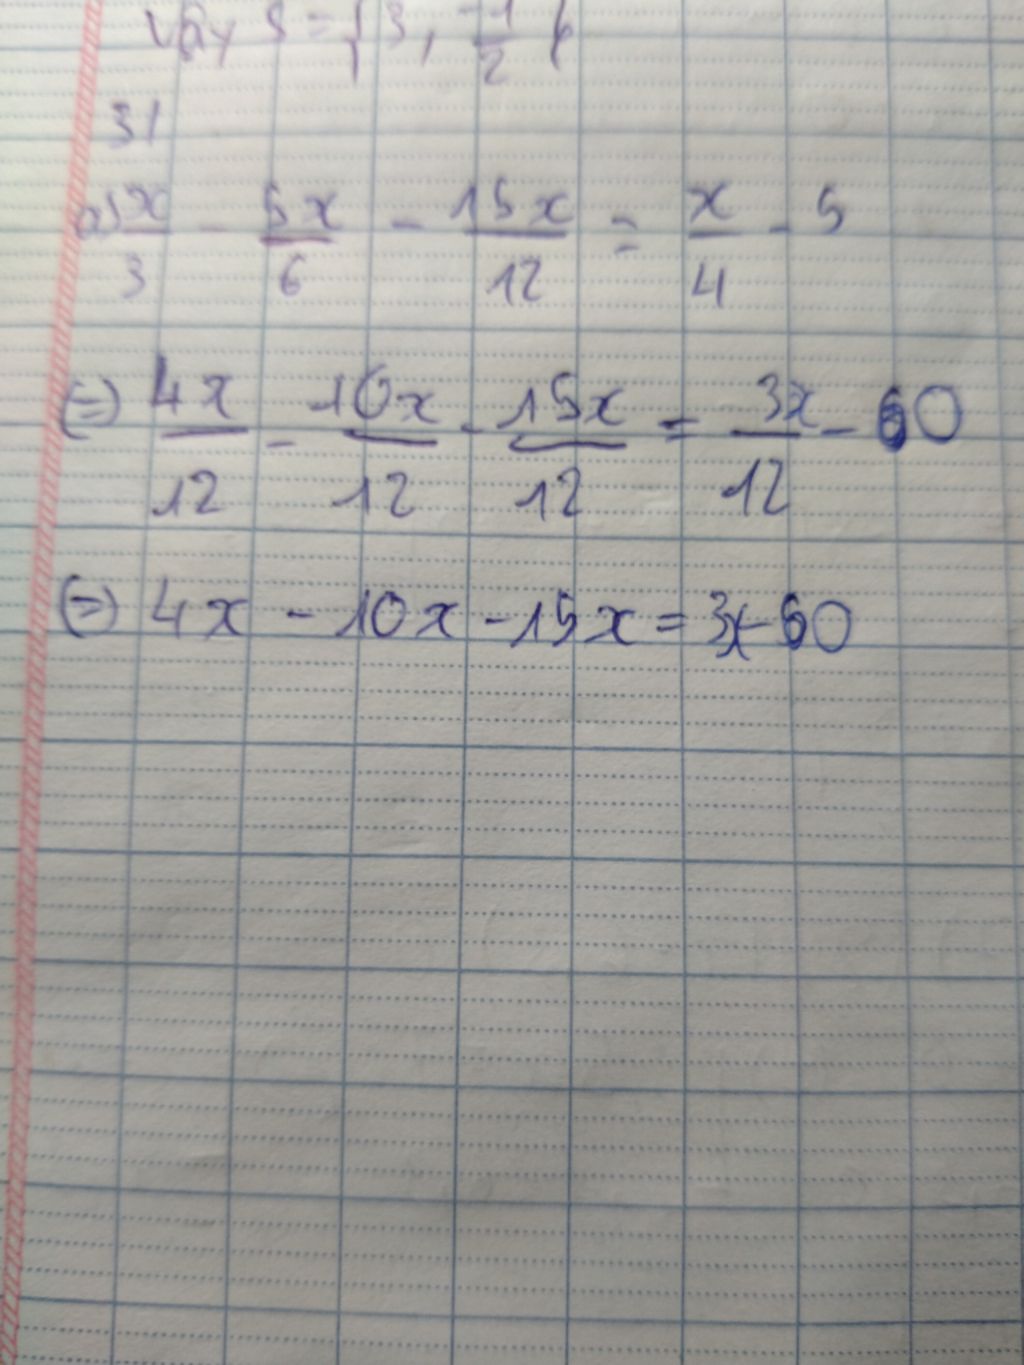 Vậy S = { 3, -1/2 }
31
a) x/3 - 5x/6 - 15x/12 = x/4 - 5
(=) 4x/12 - 10x/12 - 15x/12 = 3x/12 - 60
(=) 4x - 10x - 15x = 3x - 60